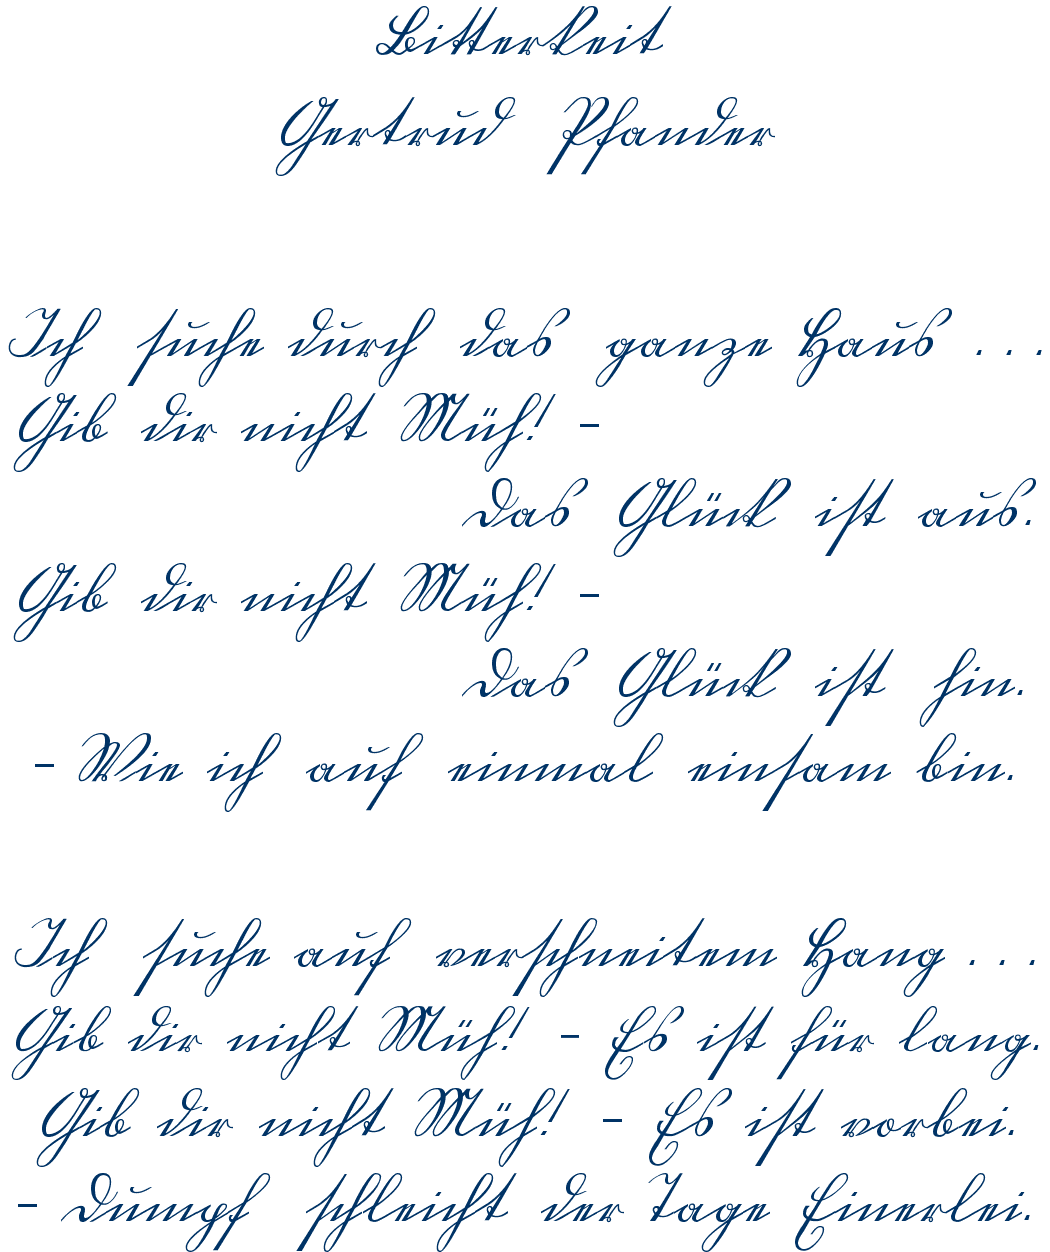 Bitterkeit
Gertrud Pfander
Ich suche durch das ganze Haus ...
Gib dir nicht Müh! –
Das Glück ist aus.
Gib dir nicht Müh! –
Das Glück ist hin.
– Wie ich auf einmal einsam bin.
Ich suche auf verschneitem Hang ...
Gib dir nicht Müh! – Es ist für lang.
Gib dir nicht Müh! – Es ist vorbei.
– Dumpf schleicht der Tage Einerlei.